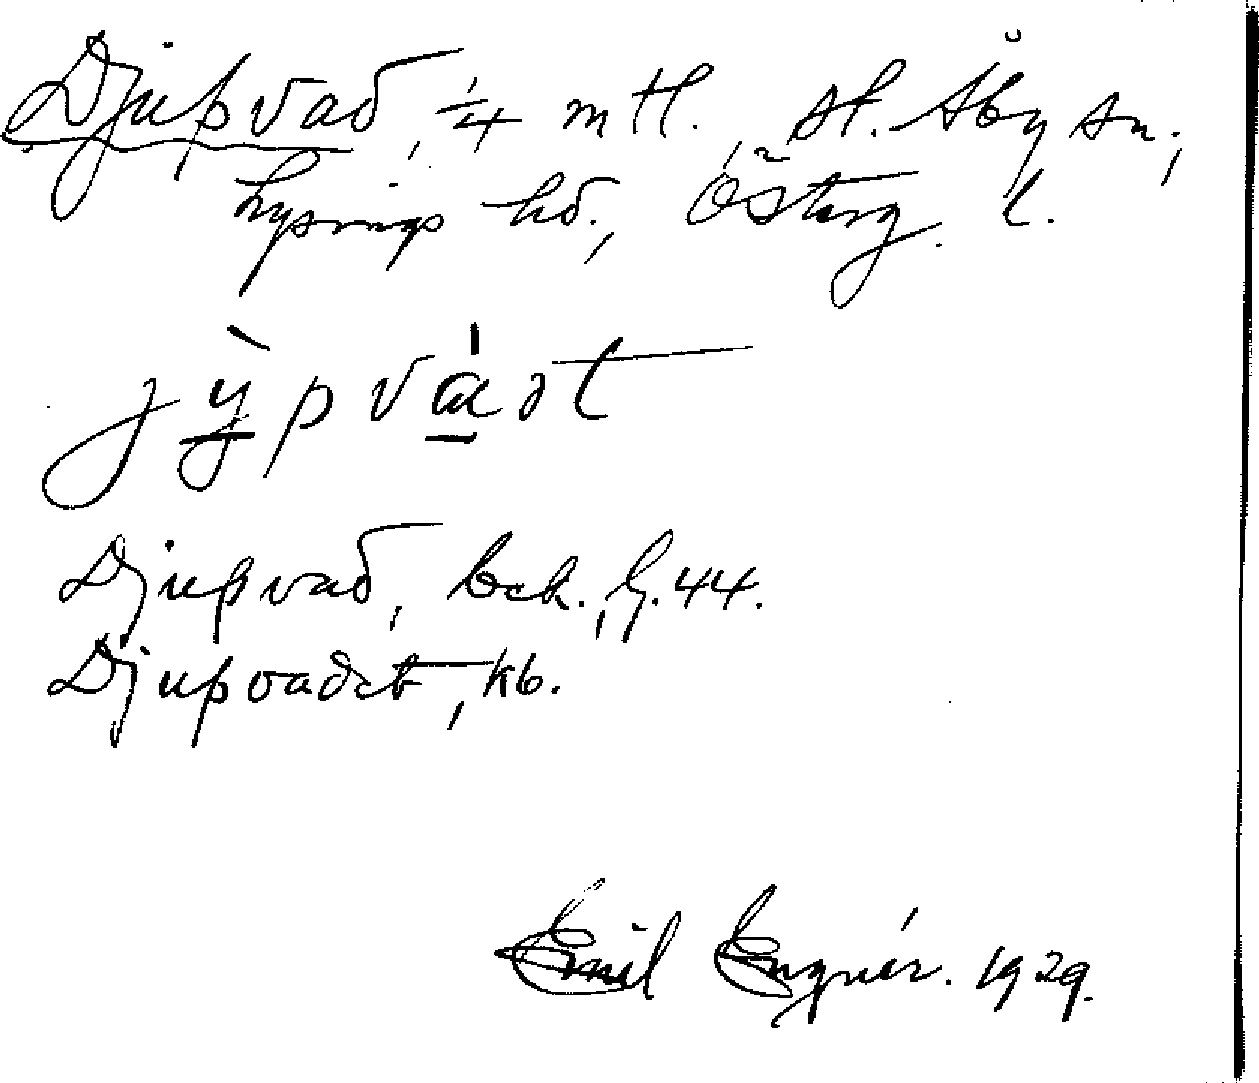 Djupvad, 1/4 mtl., St. Åby sn.,
Lysings hd., Österg. l.
jỳpvádt
Djupvad, Eck. , G. 44.
Djupvadet, kb.
Emil Engnér. 1929.